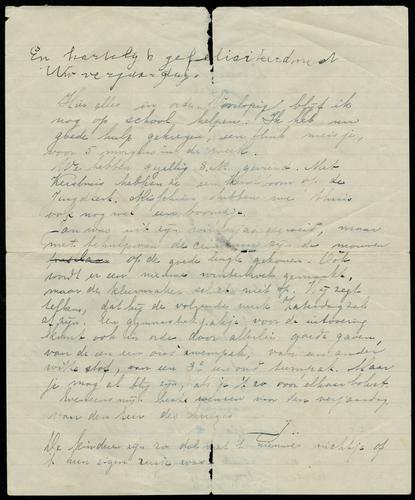 En hartelijk gefeliciteerd met
Uw verjaardag.
Hier alles in orde. Voorlopig blijf ik
nog op school helpen. Ik heb nu
goede hulp gekregen, een flink meisje,
voor 5 morgens in de week.
We hebben gezellig S.N. gevierd. Met
Kerstmis hebben we een Kerstboom op de
Jeugdkerk. Misschien hebben we thuis
ook nog wel een boompje.
Jan was uit zijn gegroeid, maar
met behulp van de zijn de mouwen
op de goede lengte gekomen. Ook
wordt er een nieuwe winterjas gemaakt,
maar de kleermaker schiet niet op. Hij zegt
telkens, dat hij de volgende week Zaterdag zal
af zijn. Een gymnastiekpakje voor de uitvoering
kwam ook in orde door allerlei goede gaven,
van de een een oud zwempak, van een ander
witte stof, van een 3e een oud turnpak. Maar
je mag al blij zijn, als je 't zo voor elkaar bokst.
Wensen mijn beste wensen voor den verjaardag
van den heer des huizes
J.
De kinderen zijn zo dol met 't nieuwe nichtje of
't hun eigen zusje was.